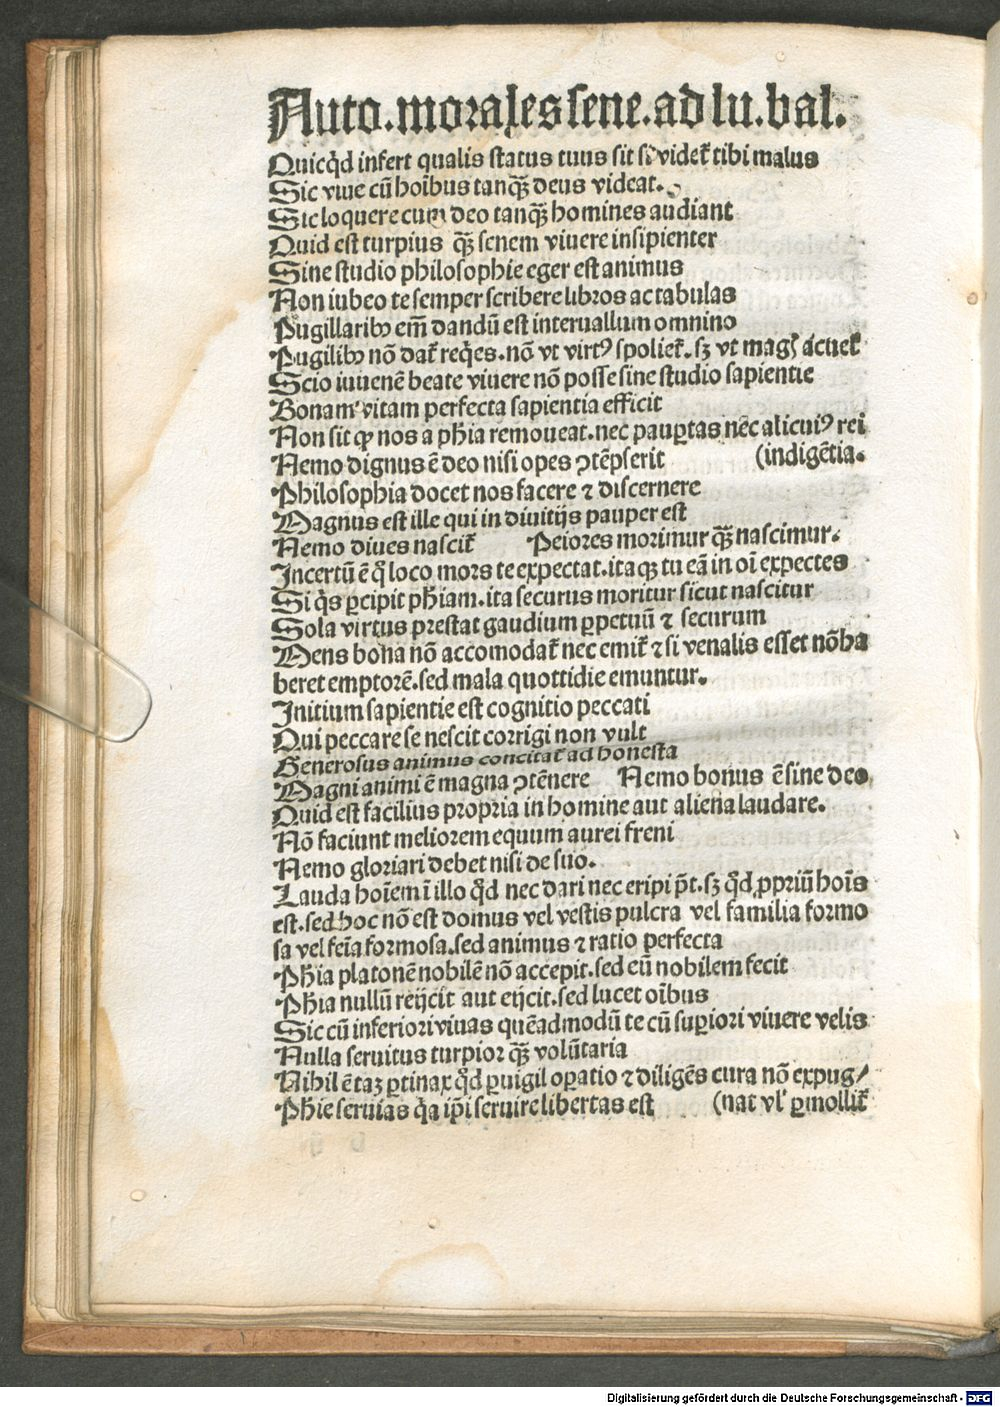 Auto.morales sene.ad lu.bal.
Quicq̃d infert qualis status tuus sit si videt̃ tibi malus
Sic viue cũ hoĩbus tanqȝ̃ deus videat.
Sic loquere cum deo tanqȝ̃ homines audiant
Quid est turpius qȝ̃ senem viuere insipienter
Sine studio philosophie eger est animus
Non iubeo te semper scribere libros ac tabulas
Pugillaribꝰ em̃ dandũ est interuallum omnino
Pugilibꝰ nõ dat̃ reqͥes.nõ vt virtꝰ spoliet̃.sȝ vt magͥ acuet̃
Scio iuuenẽ beate viuere nõ posse sine studio sapientie
Bonam vitam perfecta sapientia efficit
Non sit ꝙ nos a ph̃ia remoueat.nec paup̱tas nẽc alicuiꝰ rei
Nemo dignus ẽ deo nisi opes ꝯtẽpserit (indigẽtia.
Philosophia docet nos facere ⁊ discernere
Magnus est ille qui in diuitijs pauper est
Nemo diues nascit̃ Peiores morimur qȝ̃ nascimur.
Incertũ ẽ qͦ loco mors te expectat.itaqȝ tu eã in oĩ expectes
Si qͥs ꝑcipit ph̃iam.ita securus moritur sicut nascitur
Sola virtus prestat gaudium ꝑpetuũ ⁊ securum
Mens bona nõ accomodat̃ nec emit̃ ⁊ si venalis esset nõ ha
beret emptorẽ.sed mala quottidie emuntur.
Initium sapientie est cognitio peccati
Qui peccare se nescit corrigi non vult
Generosus animus concitat̃ ad honesta
Magni animi ẽ magna ꝯtẽnere Nemo bonus ẽ sine deo
Quid est facilius propria in homine aut aliena laudare.
Nõ faciunt meliorem equum aurei freni
Nemo gloriari debet nisi de suo.
Lauda hoĩem ĩ illo qͦd nec dari nec eripi põt.sȝ qͦd ꝓpriũ hoĩs
est.sed hoc nõ est domus vel vestis pulcra vel familia formo
sa vel feĩa formosa.sed animus ⁊ ratio perfecta
Ph̃ia platonẽ nobilẽ nõ accepit.sed eũ nobilem fecit
Ph̃ia nullũ reijcit aut eijcit.sed lucet oĩbus
Sic cũ inferiori viuas quẽadmodũ te cũ suꝑiori viuere velis
Nulla seruitus turpior qȝ̃ volũtaria
Nihil ẽ taꝫ ꝑtinax qͦd ꝑuigil oꝑatio ⁊ diligẽs cura nõ expug/
Ph̃ie seruias qͥa ip̃i seruire libertas est (nat vl̃ ꝑmollit̃
Digitalisierung gefördert durch die Deutsche Forschungsgemeinschaft - DFG